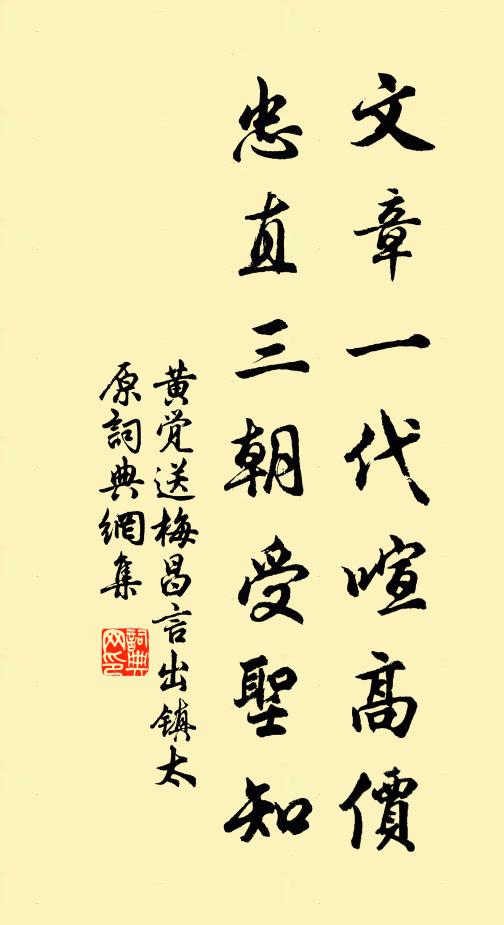 文章一代喧高價
忠直三朝受聖知
黄覚送梅昌言出鎮太
原詞典網集
詞典网印